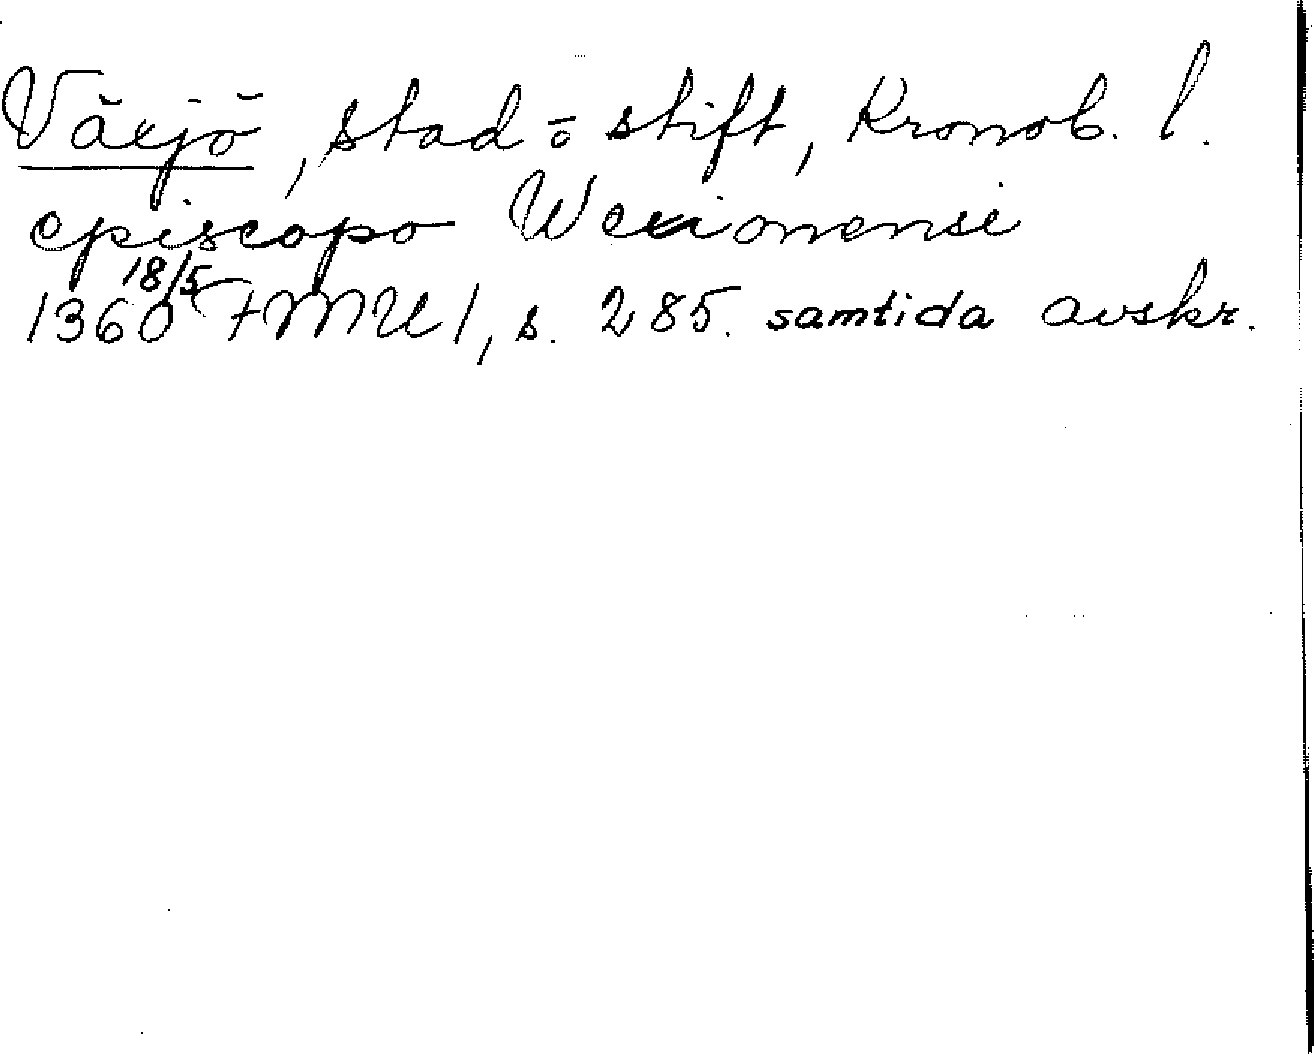 Växjö, stad o stift, Kronob. l.
episcopo Wexionensi
1360 18/5 FMU 1, s. 285. samtida avskr.